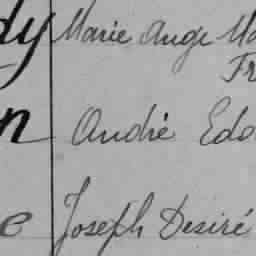 dy Marie Ange Ma
Fr
n André Edo
e Joseph Desiré